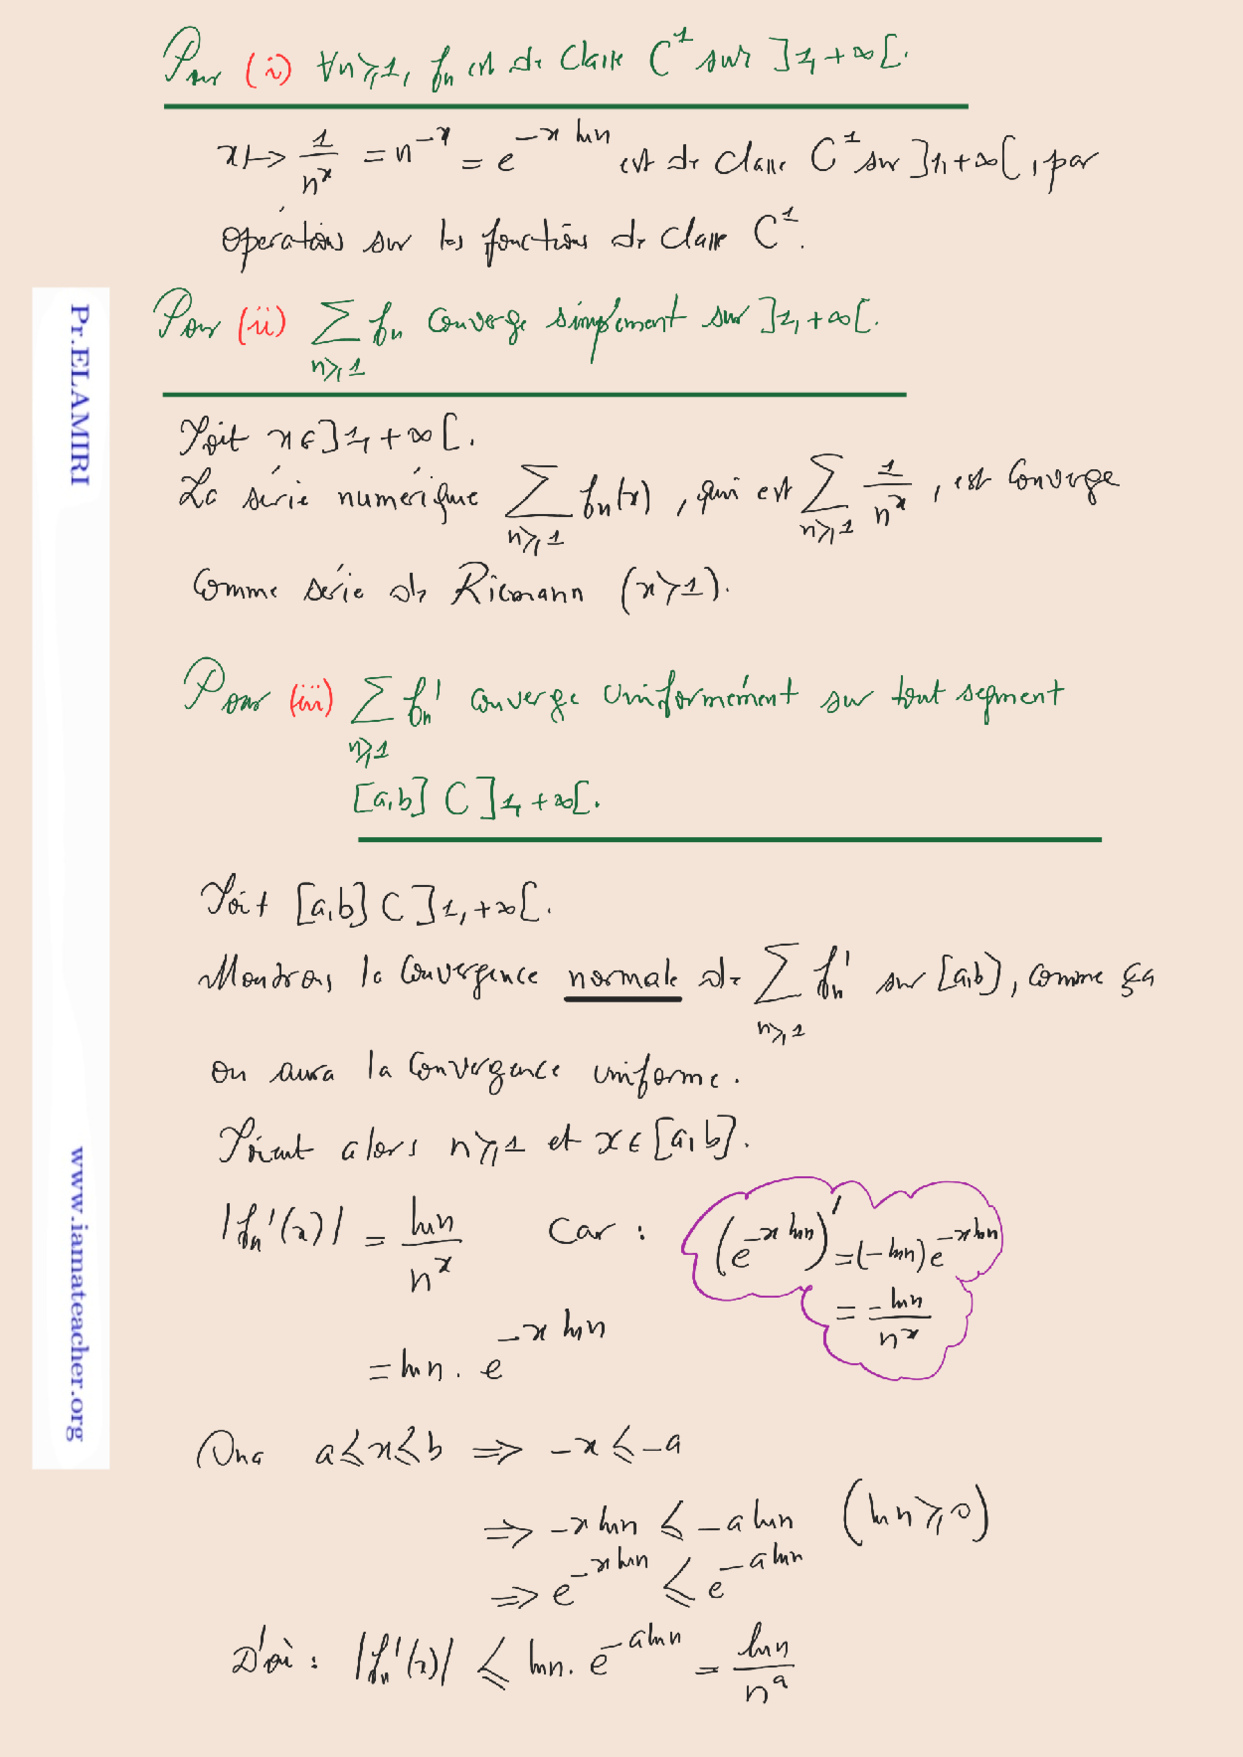 Pour (i) ∀n⩾1, fn est de classe C¹ sur ]1,+∞[.
x ↦ 1/n^x = n^-x = e^-x ln n est de classe C¹ sur ]1,+∞[, par
opérations sur les fonctions de classe C¹.
Pour (ii) ∑_{n⩾1} fn converge simplement sur ]1,+∞[.
Soit x ∈ ]1,+∞[.
La série numérique ∑_{n⩾1} fn(x), qui est ∑_{n⩾1} 1/n^x, est converge
comme série de Riemann (x>1).
Pour (iii) ∑_{n⩾1} fn' converge uniformément sur tout segment
[a,b] ⊂ ]1,+∞[.
Soit [a,b] ⊂ ]1,+∞[.
Montrons la convergence normale de ∑_{n⩾1} fn' sur [a,b], comme ça
on aura la convergence uniforme.
Soient alors n⩾1 et x ∈ [a,b].
|fn'(x)| = ln n / n^x Car : (e^-x ln n)' = (-ln n) e^-x ln n
= -ln n / n^x
= ln n . e^-x ln n
On a a ⩽ x ⩽ b ⟹ -x ⩽ -a
⟹ -x ln n ⩽ -a ln n (ln n ⩾ 0)
⟹ e^-x ln n ⩽ e^-a ln n
D'où : |fn'(x)| ⩽ ln n . e^-a ln n = ln n / n^a
Pr.ELAMIRI
www.iamateacher.org